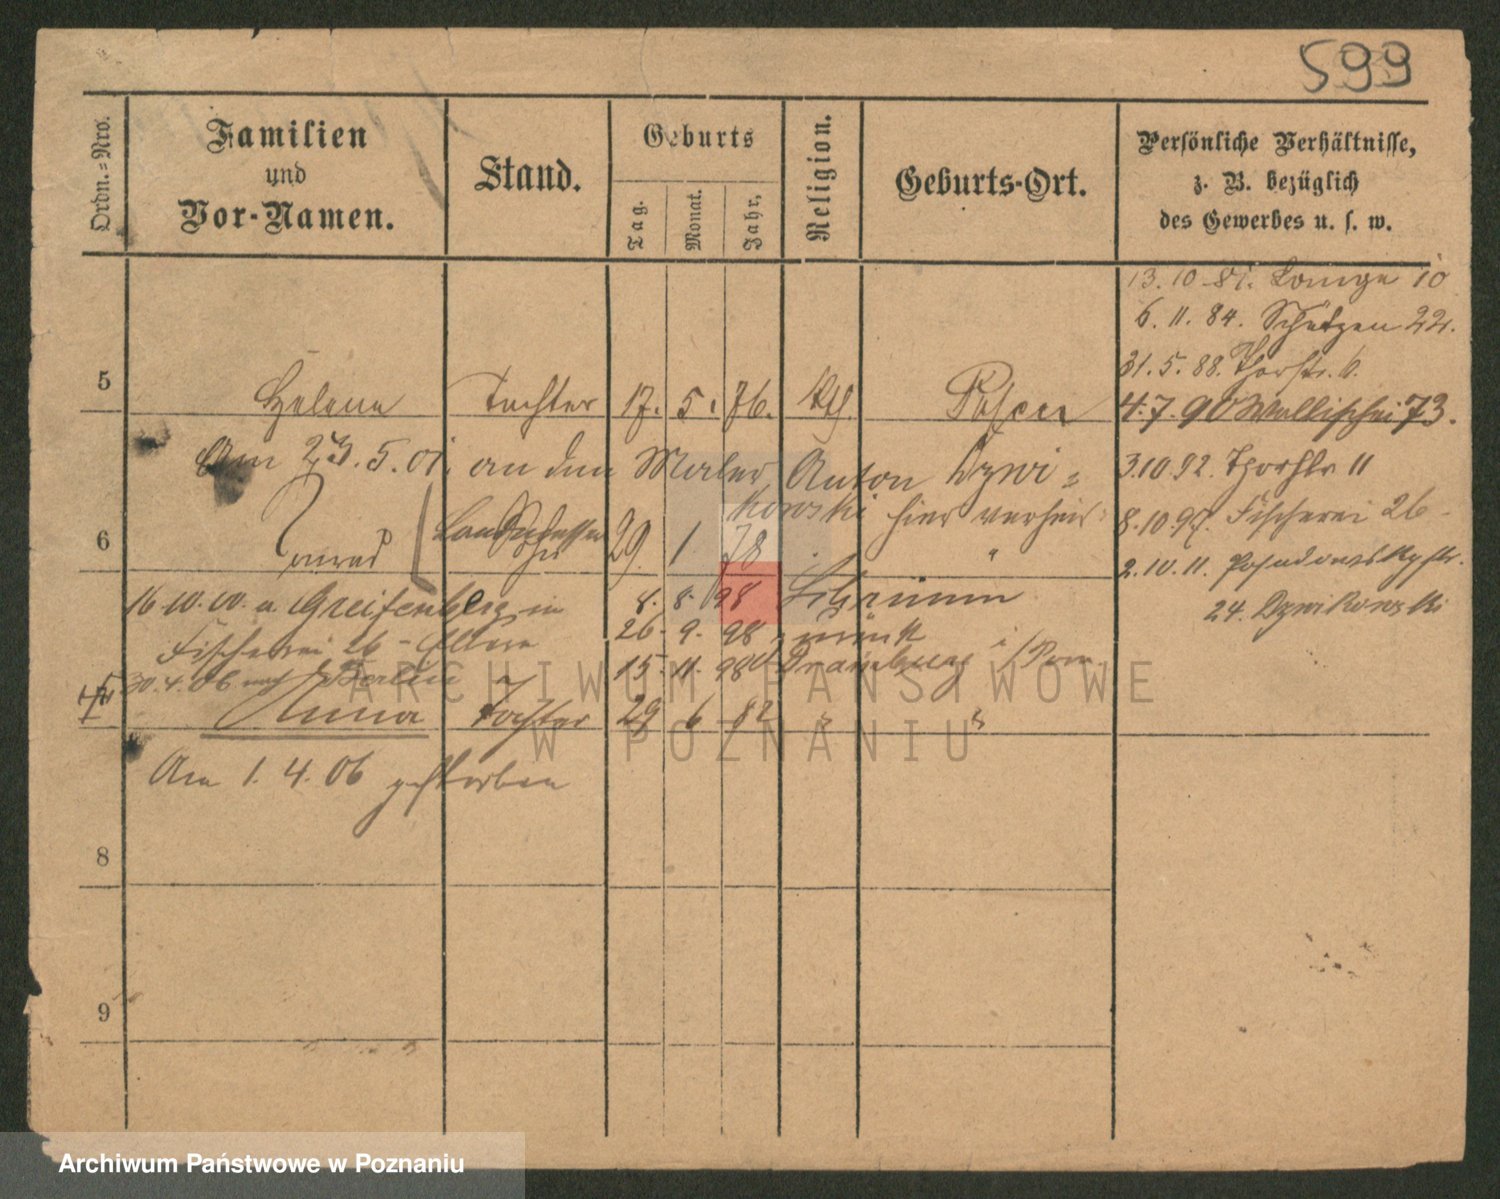 599
Ordn.=Nro.
Familien
und
Vor-Namen.
Stand.
Geburts
Tag.
Monat.
Jahr,
Religion.
Geburts-Ort.
Persönliche Verhältnisse,
z. B. bezüglich
des Gewerbes u. s. w.
13.10.81. Lange 10
6.11.84. Schützen 22.
31.5.88. Thorstr. 6.
5 Helene Tochter 17. 5. 76. kth. Posen
4.7.90 Wallischei 73.
Am 23.5.01. an den Maler Anton Dzwi=
3.10.92. Thorstr 11
kowski hier verheir
8.10.97. Fischerei 26
6 29. 1 78 "
2.10.11. Posadowskystr.
16.10.00. a. Greifenberg in 8. 8. 98 Schrimm
24. Dzwikowski
Fischerei 26 - Eltern 26. 9. 98 zurück
30.4.06 nach Berlin 15. 11. 98 Dramburg i/Pom
7 Anna Tochter 29 6 82 " "
Am 1.4.06 gestorben
8
9
ARCHIWUM PAŃSTWOWE
W POZNANIU
Archiwum Państwowe w Poznaniu